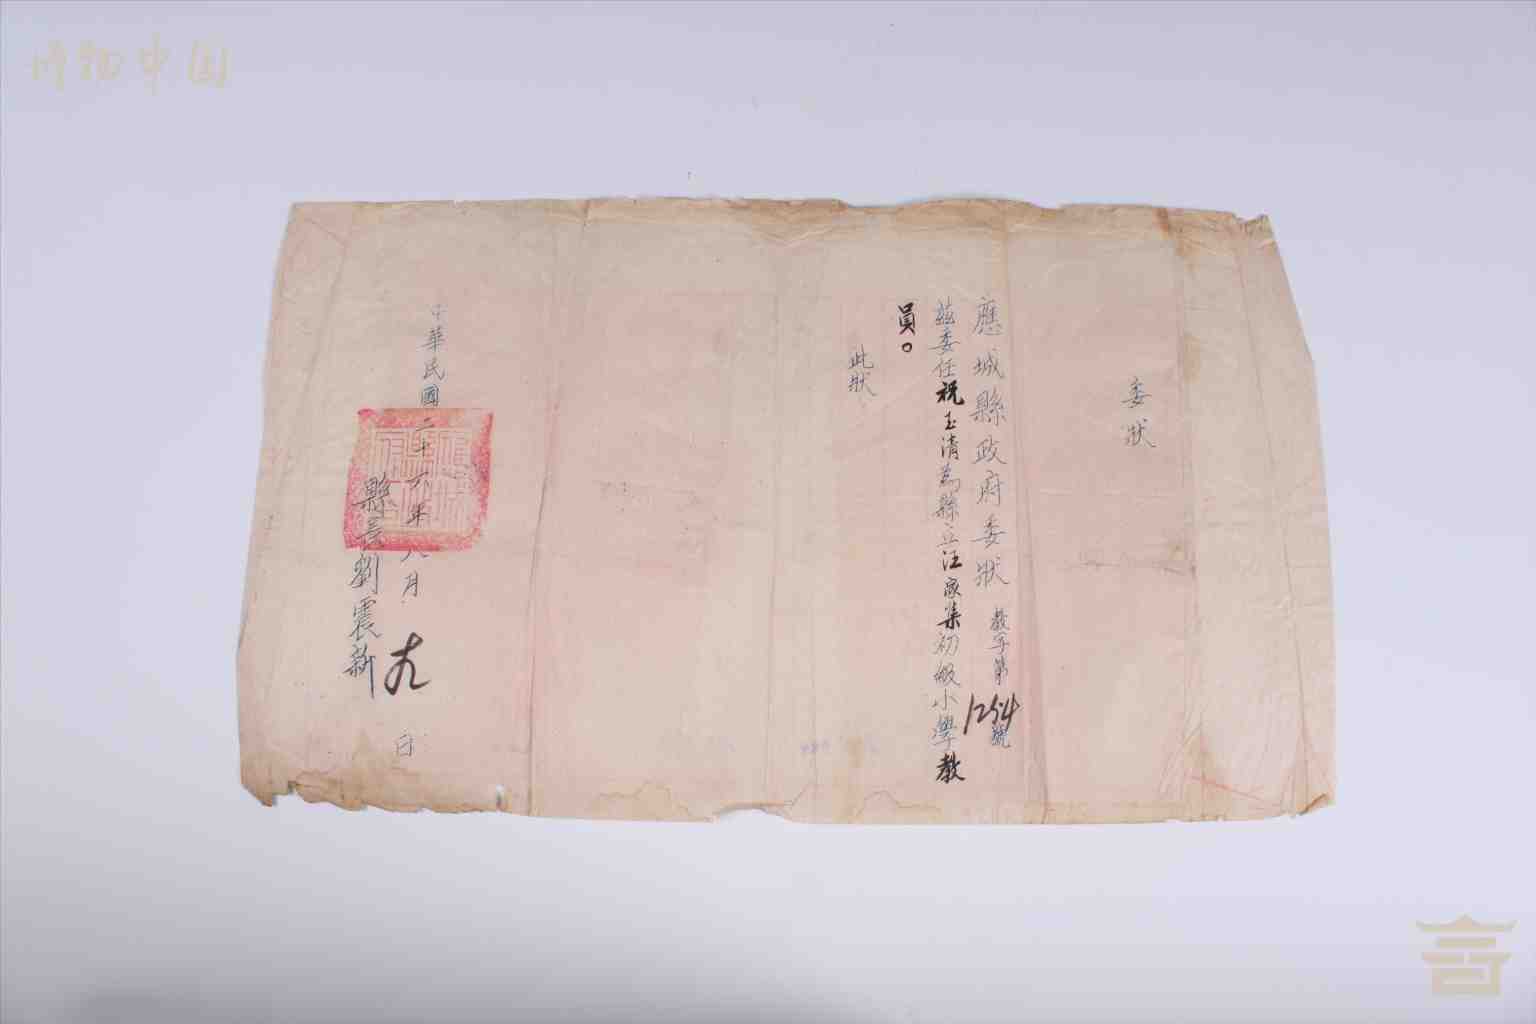 委狀
應城縣政府委狀 教字第1254號
茲委任祝玉清為縣立汪家集初級小學教
員。
此狀
中華民國二十六年八月 九 日
縣長劉震新
博物中国